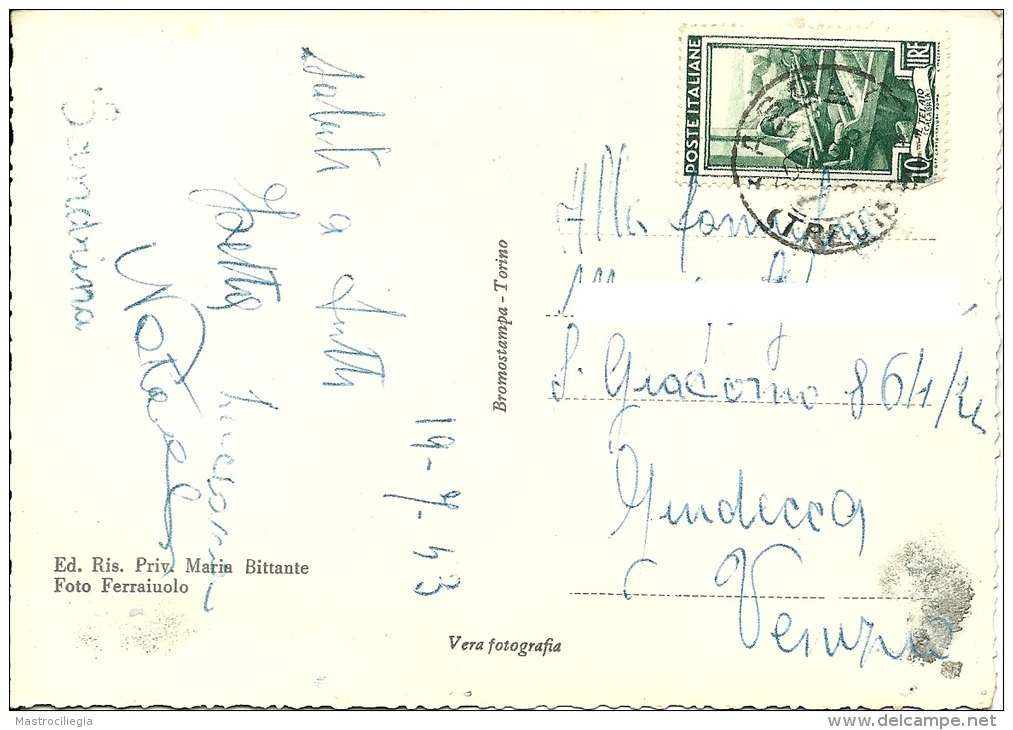 POSTE ITALIANE
LIRE
10
IL TELAIO
(CALABRIA)
(TREVISO)
Saluti a tutti
19-7-53
Sandrina
Alla famiglia
S. Giacomo 864/
Giudecca
Venezia
Bromostampa - Torino
Ed. Ris. Priv. Maria Bittante
Foto Ferraiuolo
Vera fotografia
Mastrociliegia
delcampe.net